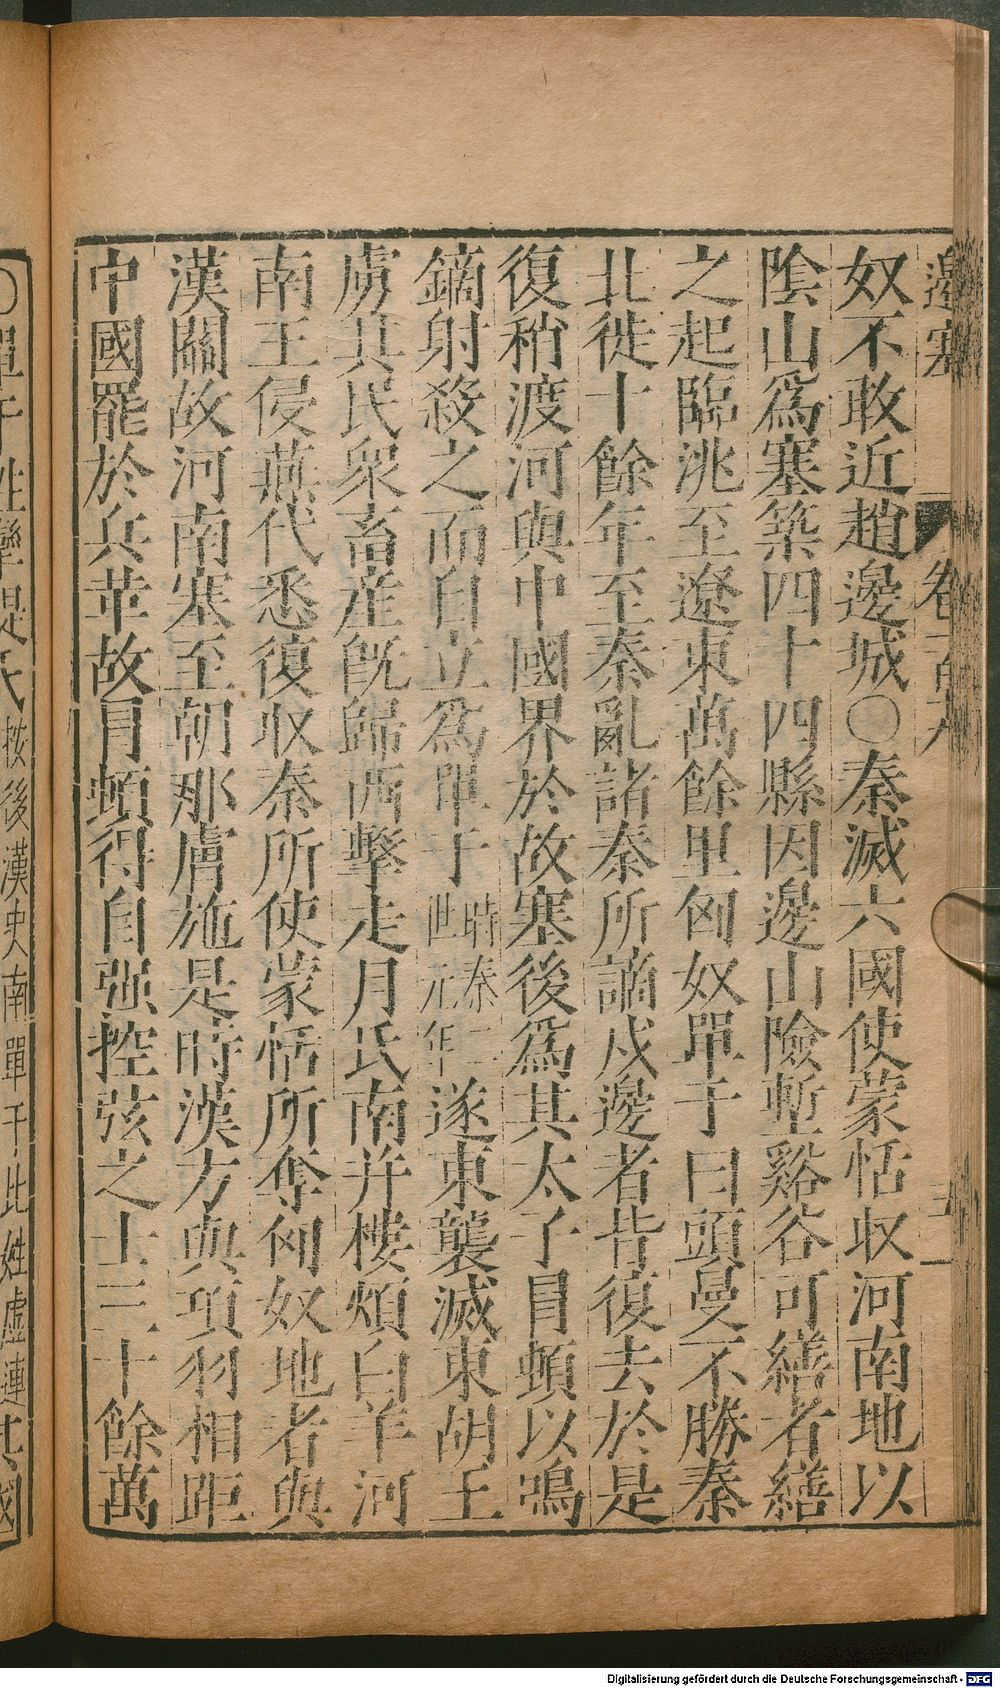 邊塞 卷
奴不敢近趙邊城○秦滅六國使蒙恬収河南地以
陰山爲塞築四十四縣因邊山險塹谿谷可繕者繕
之起臨洮至遼東萬餘里匈奴單于曰頭曼不勝秦
北徙十餘年至秦亂諸秦所謫戍邊者皆復去於是
復稍渡河與中國界於故塞後爲其太子冒頓以鳴
鏑射殺之而自立爲單于時秦二世元年遂東襲滅東胡王
虜其民衆畜產旣歸西擊走月氏南并樓煩白羊河
南王侵燕代悉復収秦所使蒙恬所奪匈奴地者與
漢關故河南塞至朝那膚施是時漢方與項羽相距
中國罷於兵革故冒頓得自强控弦之士三十餘萬
○單于姓攣鞮氏按後漢史南單于比姓虛連其國
Digitalisierung gefördert durch die Deutsche Forschungsgemeinschaft - DFG